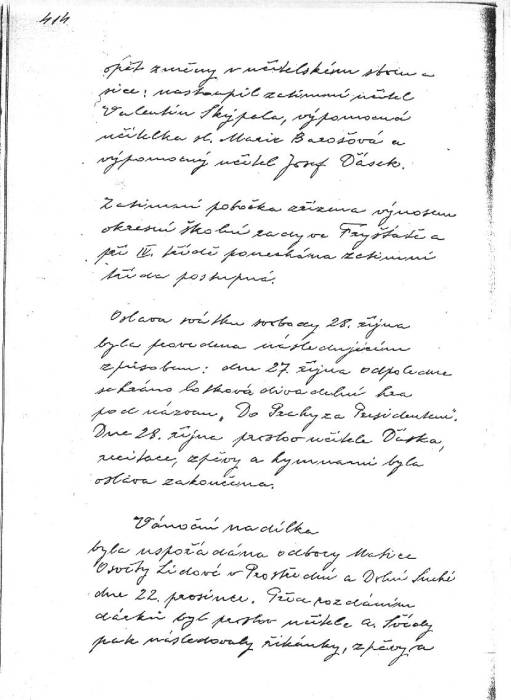 414
opět změny v učitelském sboru a
sice: nastoupil zatimní učitel
Valentin Skýpala, výpomocná
učitelka sl. Marie Barošová a
výpomocný učitel Josef Ďásek.
Zatimní pobočka zřízena výnosem
okresní školní rady ve Fryštatě a
při IV. třídě ponechána zatimní
třída postupná.
Oslava svátku svobody 28. října
byla provedena následujícím
způsobem: dne 27. října odpoledne
sehráno loutková divadelní hra
pod názvem „Do Prahy za Presidentem".
Dne 28. října proslov učitele Ďáska,
recitace, zpěvy a hymnami byla
oslava zakončena.
Vánoční nadílka
byla uspořádána odbory Matice
Osvěty Lidové v Prostřední a Dolní Suché
dne 22. prosince. Před rozdáním
dárků byl proslov učitele A.
pak následovaly říkánky, zpěvy a